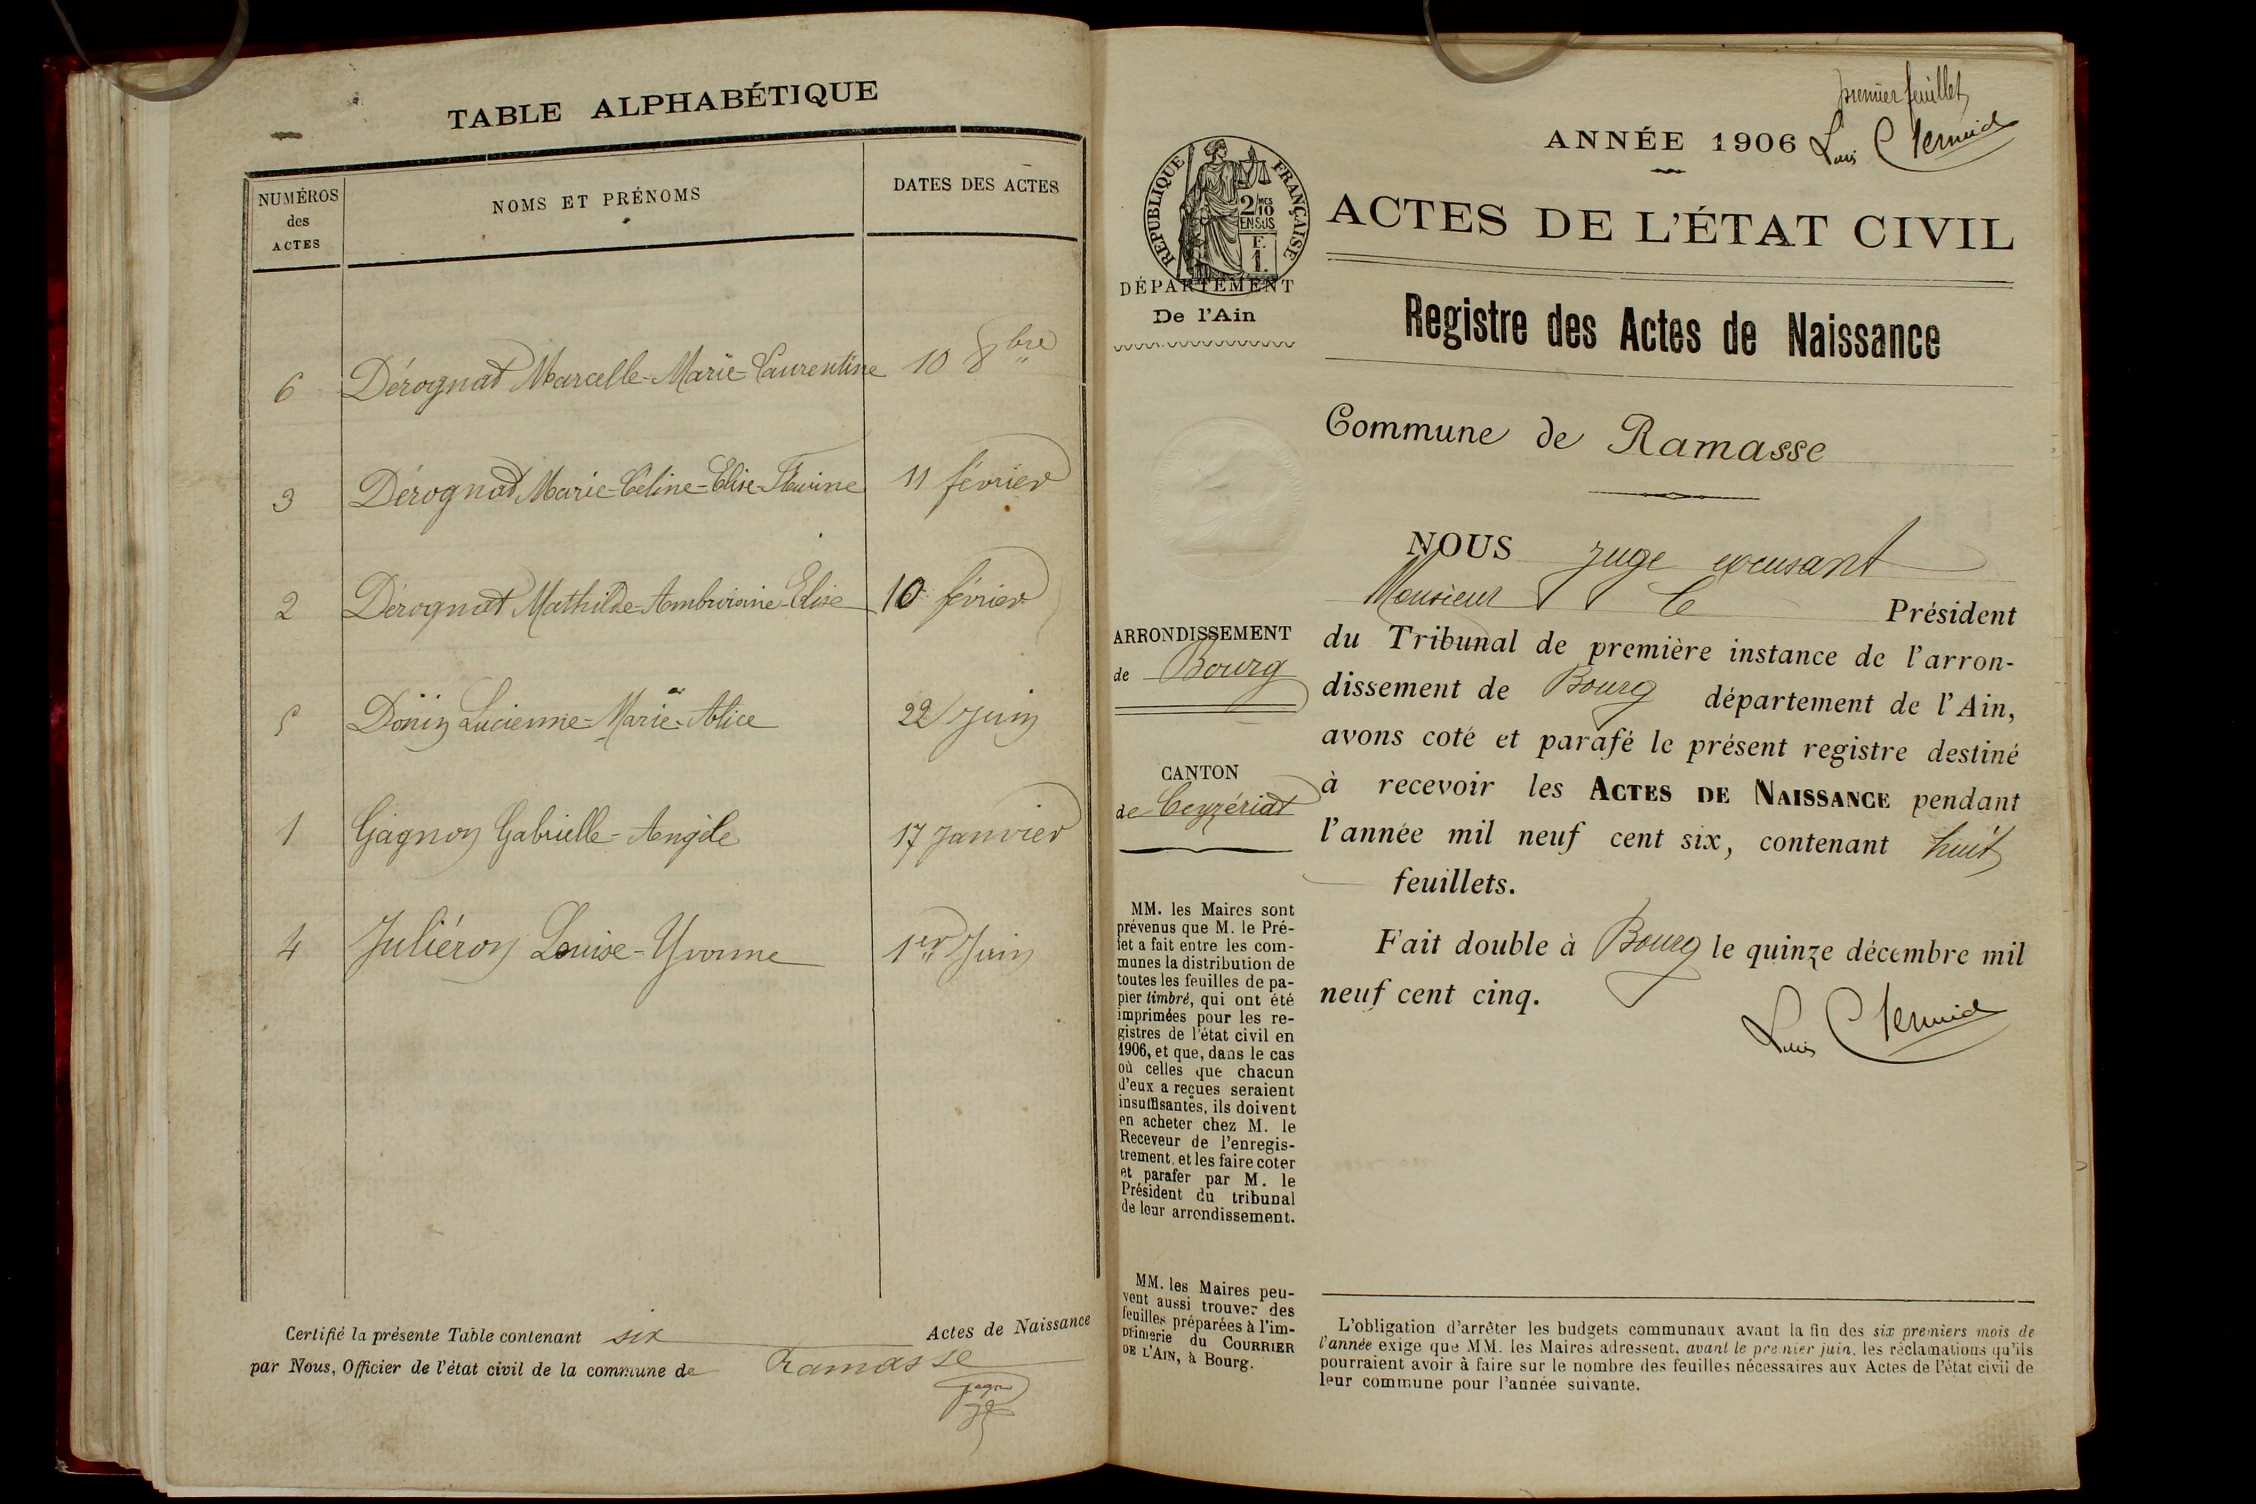 TABLE ALPHABÉTIQUE
NUMÉROS
des
ACTES
NOMS ET PRÉNOMS
DATES DES ACTES
6 Dérognat Marcelle-Marie-Laurentine 10 8bre
3 Dérognat Marie-Céline-Elise-Fleurine 11 février
2 Dérognat Mathilde-Ambroisine-Elise 10 février
5 Donin Lucienne-Marie-Alice 22 Juin
1 Gagnon Gabrielle-Angèle 17 Janvier
4 Juliéron Louise-Yvonne 1er Juin
Certifié la présente Table contenant six Actes de Naissance
par Nous, Officier de l'état civil de la commune de Ramasse
premier feuillet
ANNÉE 1906
Louis
RÉPUBLIQUE FRANÇAISE
2/10MES
EN SUS
F.
1.
ACTES DE L'ÉTAT CIVIL
DÉPARTEMENT
De l'Ain
Registre des Actes de Naissance
Commune de Ramasse
NOUS Juge excusant
Monsieur le Président
du Tribunal de première instance de l'arron-
dissement de Bourg département de l'Ain,
avons coté et parafé le présent registre destiné
à recevoir les ACTES DE NAISSANCE pendant
l'année mil neuf cent six, contenant huit
feuillets.
Fait double à Bourg le quinze décembre mil
neuf cent cinq.
Louis
ARRONDISSEMENT
de Bourg
CANTON
de Ceyzériat
MM. les Maires sont
prévenus que M. le Pré-
fet a fait entre les com-
munes la distribution de
toutes les feuilles de pa-
pier timbré, qui ont été
imprimées pour les re-
gistres de l'état civil en
1906, et que, dans le cas
où celles que chacun
d'eux a reçues seraient
insuffisantes, ils doivent
en acheter chez M. le
Receveur de l'enregis-
trement, et les faire coter
et parafer par M. le
Président du tribunal
de leur arrondissement.
MM. les Maires peu-
vent aussi trouver des
feuilles préparées à l'im-
primerie du COURRIER
DE L'AIN, à Bourg.
L'obligation d'arrêter les budgets communaux avant la fin des six premiers mois de
l'année exige que MM. les Maires adressent, avant le premier juin, les réclamations qu'ils
pourraient avoir à faire sur le nombre des feuilles nécessaires aux Actes de l'état civil de
leur commune pour l'année suivante.